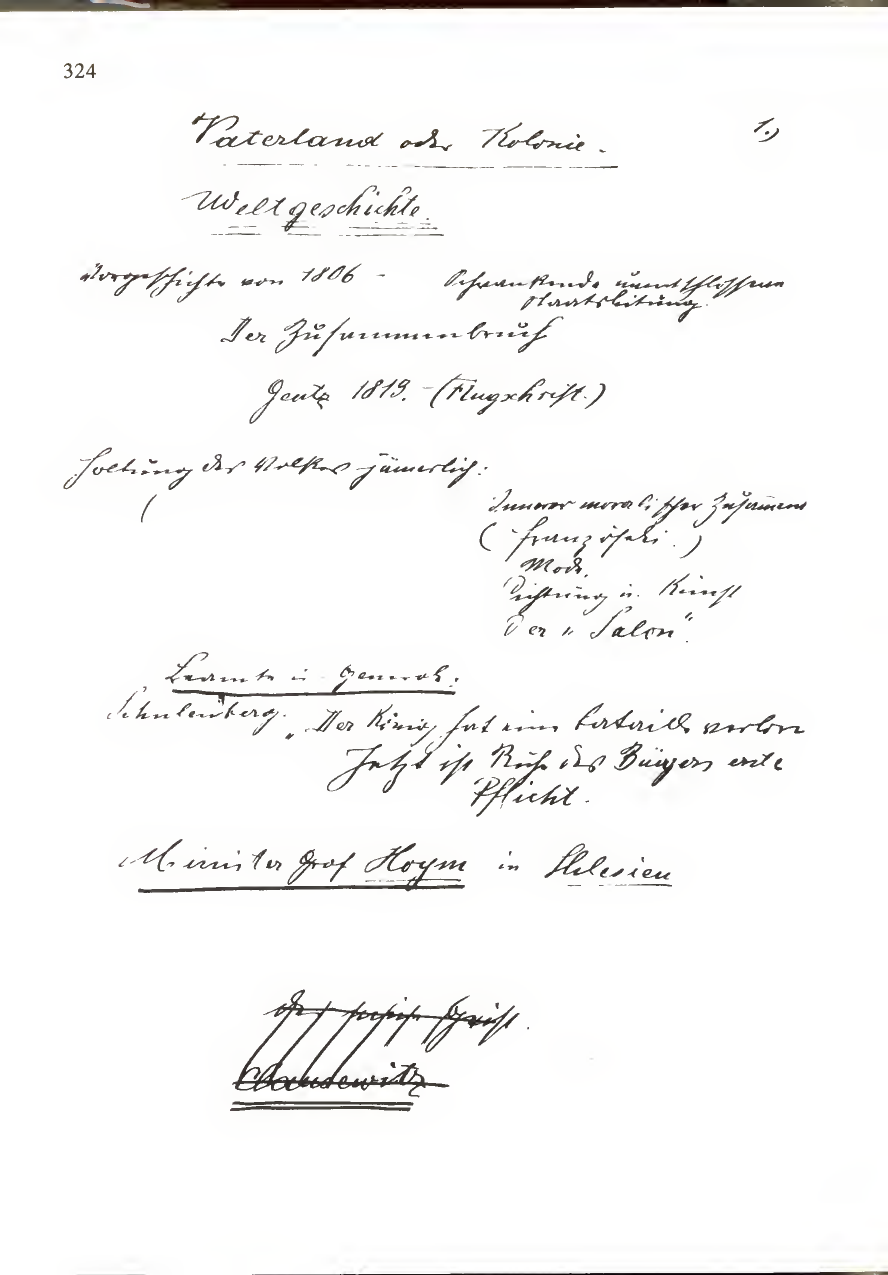 324
Vaterland oder Kolonie. 1.)
Weltgeschichte.
Vorgeschichte von 1806 - Schwankende unentschlossene
Staatsleitung.
Der Zusammenbruch
Gentz 1819. - (Flugschrift.)
Haltung des Volkes jämerlich:
(
Innerer moralischer Zusamens
( französski. )
Mode.
Dichtung u. Kunst
Der „Salon“.
Beamte u. General:
Schulenburg. „Der König hat eine Bataille verlore
Jetzt ist Ruhe des Bürgers erste
Pflicht.
Minister Graf Hoym in Schlesien
Clausewitz